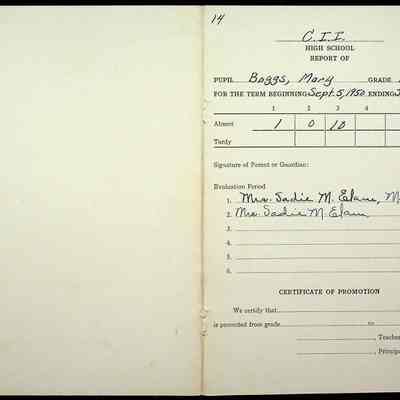 14
C. I. I.
HIGH SCHOOL
REPORT OF
PUPIL Boggs, Mary GRADE
FOR THE TERM BEGINNING Sept. 5, 1950 ENDING
1 2 3 4
Absent 1 0 10
Tardy
Signature of Parent or Guardian:
Evaluation Period
1. Mrs. Sadie M. Elam, M
2. Mrs. Sadie M. Elam
3.
4.
5.
6.
CERTIFICATE OF PROMOTION
We certify that
is promoted from grade to
, Teacher
, Principa